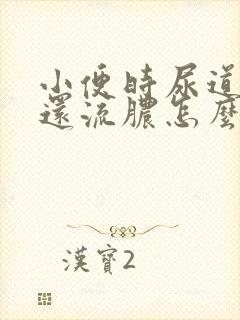 小便時尿道
還流膿怎麼
漢寶2